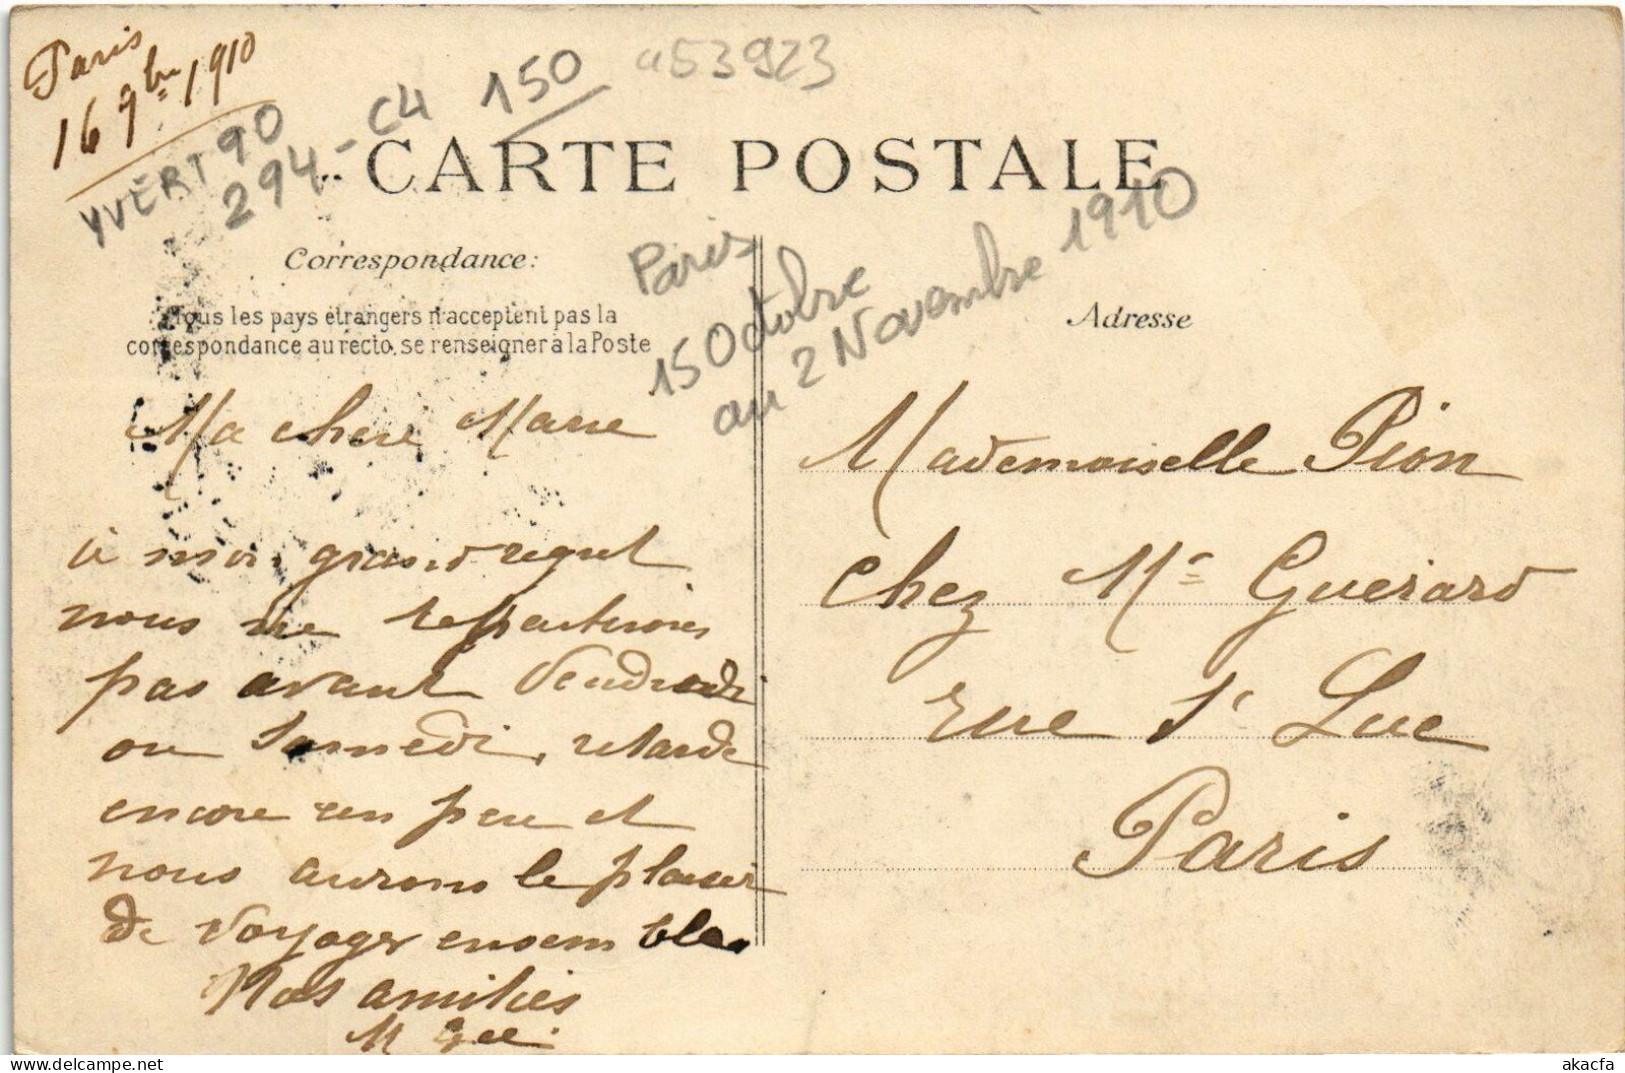 Paris
16 9bre 1910
YVERT 90
294-C4 150 a53923
CARTE POSTALE
Correspondance:
Tous les pays étrangers n'acceptent pas la
correspondance au recto, se renseigner à la Poste
Paris
15 Octobre
au 2 Novembre 1910
Adresse
Ma chère Marie
à mon grand regret
nous ne repartirons
pas avant Vendredi
ou Samedi, retarde
encore un peu et
nous aurons le plaisir
de voyager ensemble
Nos amitiés
Mademoiselle Pion
chez Mr Guerard
rue St Luc
Paris
akacfa